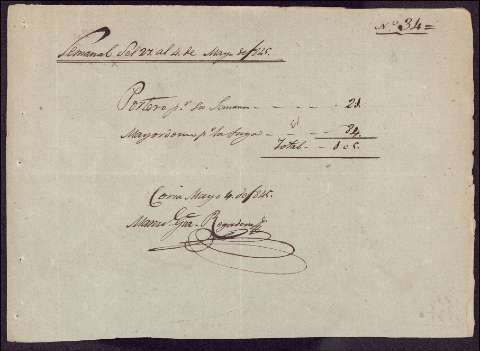 Nº 34=
Semanal del 27 al 4 de Mayo de 845.
Portero pr. su Semana - - - - 21.
Mayordomo pr. la suya - - 84.
Total - - 105.
Coria Mayo 4 de 845.
Manl. Gra.